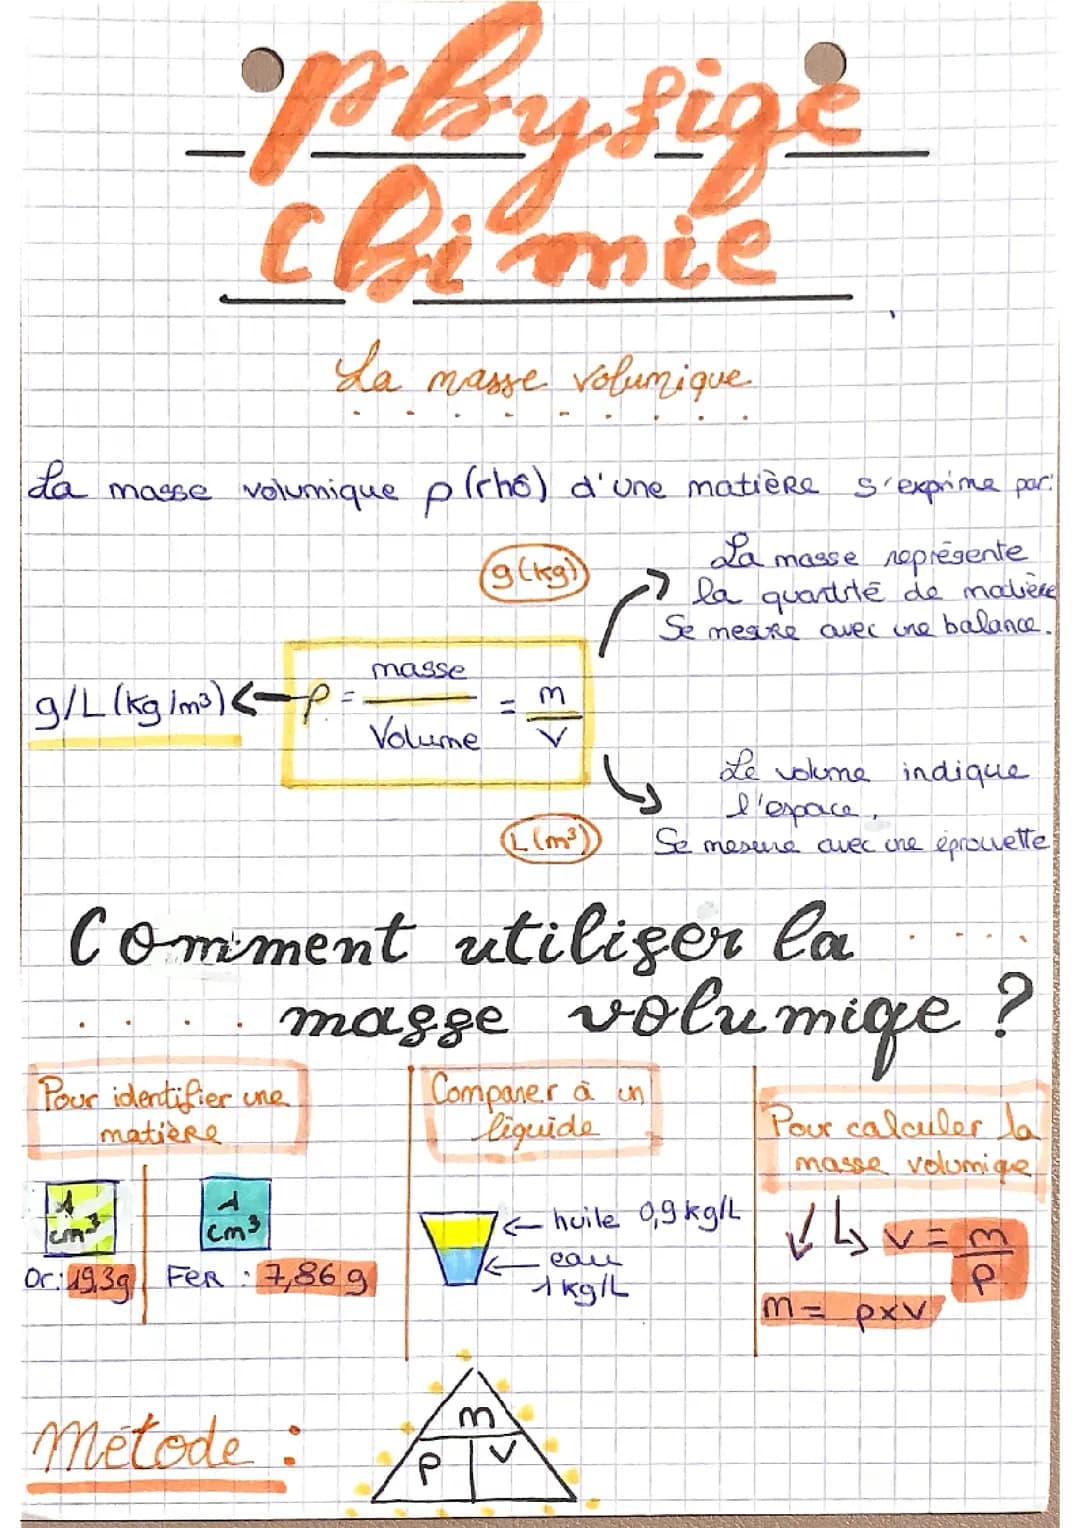 physiqe
chimie
La masse volumique
La masse volumique ρ (rhô) d'une matière s'exprime par:
g(kg)
La masse représente
la quantité de matière
Se mesure avec une balance.
g/L (kg/m³) ← ρ = masse / Volume = m / V
Le volume indique
l'espace,
Se mesure avec une éprouvette
L (m³)
Comment utiliser la
masse volumiqe ?
Pour identifier une
matière
1 cm³
Or: 19,3g
1 cm³
FER : 7,86 g
Comparer à un
liquide
← huile 0,9 kg/L
← eau
1 kg/L
Pour calculer la
masse volumique
V = m / ρ
m = ρxV
Métode :
m
ρ V